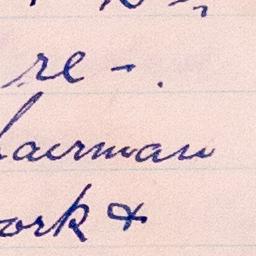 re-.
hairman
ork &